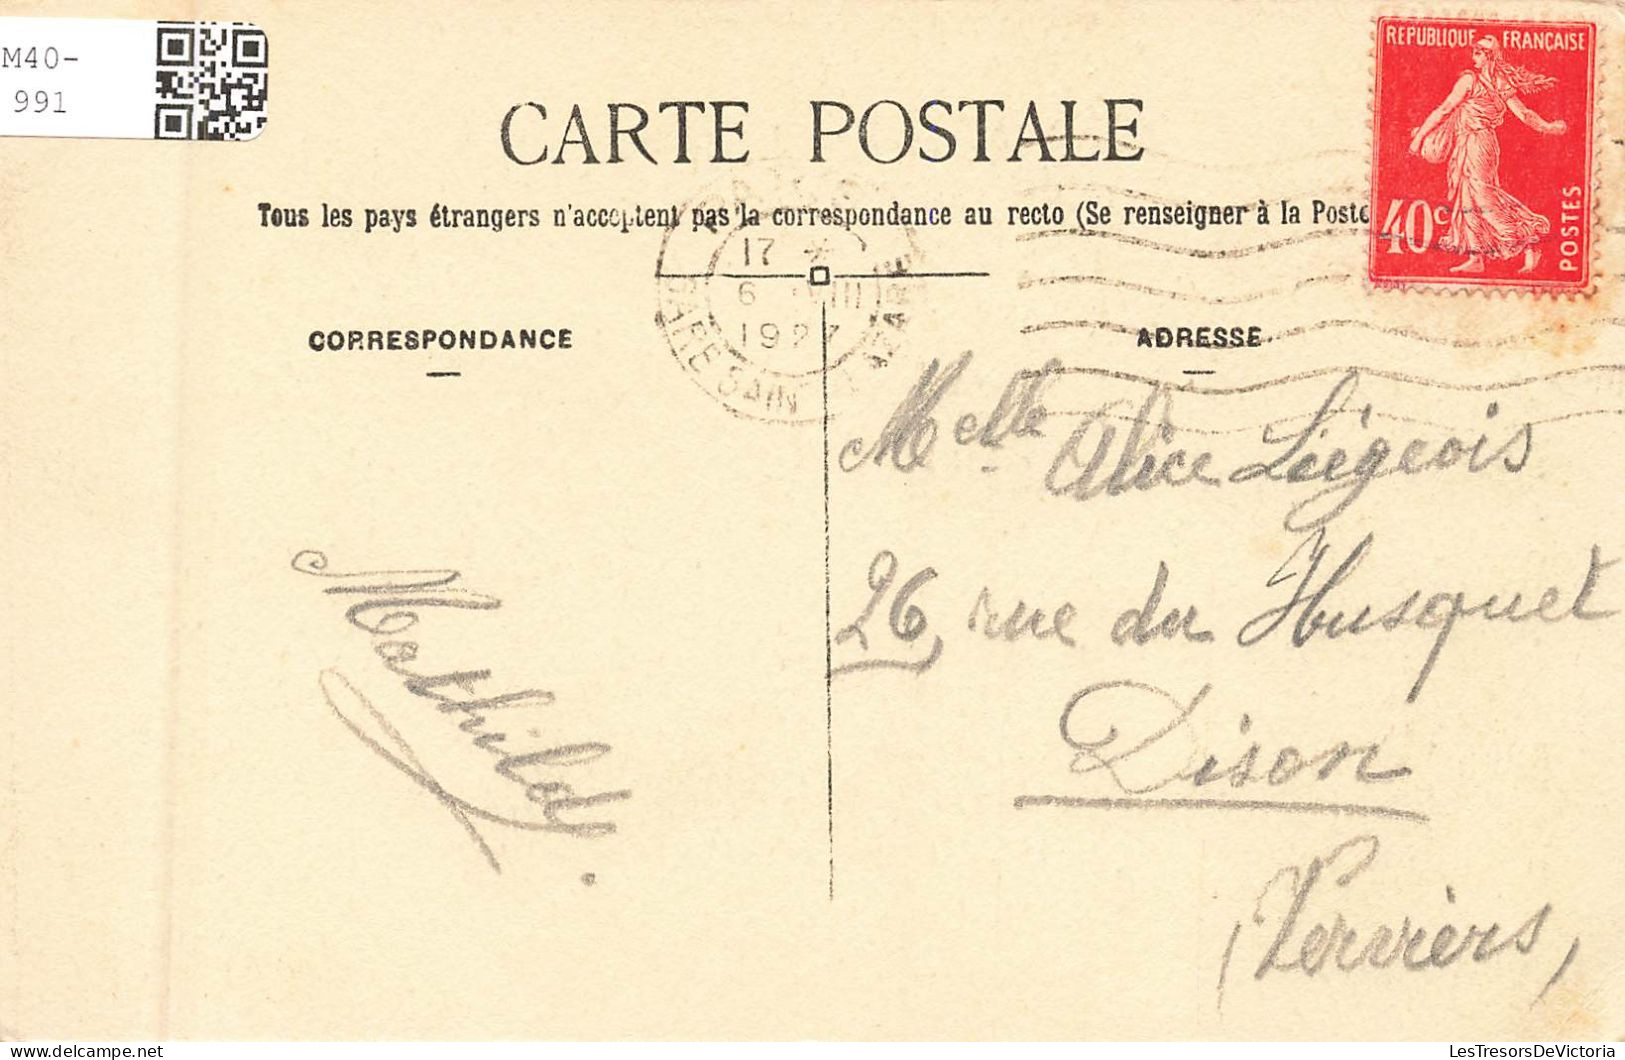 M40-
991
CARTE POSTALE
Tous les pays étrangers n'acceptent pas la correspondance au recto (Se renseigner à la Poste
REPUBLIQUE FRANÇAISE
40c
POSTES
17 *
6 III
1927
GARE SAIN LAZARE
CORRESPONDANCE
ADRESSE
Melle Alice Liégeois
26, rue du Husquet
Dison
(Verviers)
Mathilde.
delcampe.net
LesTresorsDeVictoria